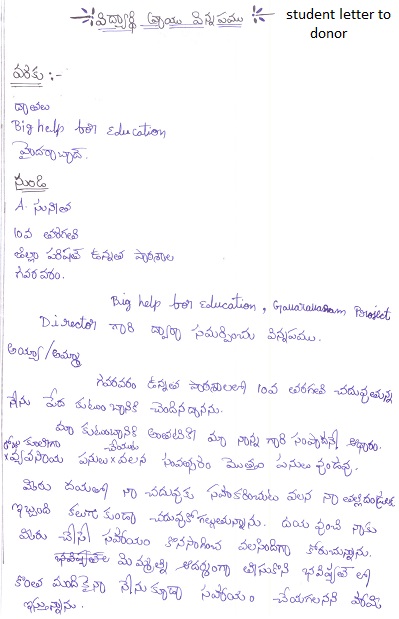 విద్యార్థి వ్రాయు విన్నపము
student letter to
donor
వరకు :-
దాతలు
Big help for Education
హైదరాబాద్.
నుండి
A. సునీత
10వ తరగతి
జిల్లా పరిషత్ ఉన్నత పాఠశాల
గవరవరం.
Big help for Education, Gavaravaram Project
Director గారి ద్వారా సమర్పించు విన్నపము.
అయ్యా/అమ్మా
గవరవరం ఉన్నత పాఠశాలలో 10వ తరగతి చదువుతున్న
నేను పేద కుటుంబానికి చెందినదానను.
మా కుటుంబానికి అంతటికి మా నాన్న గారి సంపాదనే ఆధారం.
రోజు కూలీగా చేయుట
వ్యవసాయ పనులు వలన సంవత్సరం మొత్తం పనులు వుండవు.
మీరు దయతో నా చదువుకు సహకరించుట వలన నా తల్లిదండ్రులకు
ఇబ్బంది కలగకుండా చదువుకోగల్గుతున్నాను. దయ వుంచి నాకు
మీరు చేసే సహాయం కొనసాగించ వలసిందిగా కోరుచున్నాను.
భవిష్యత్‌లో మిమ్మల్ని ఆదర్శంగా తీసుకొని భవిష్యత్ లో
కొంత మందికైనా నేను కూడా సహాయం చేయగలనని హామీ
ఇస్తున్నాను.